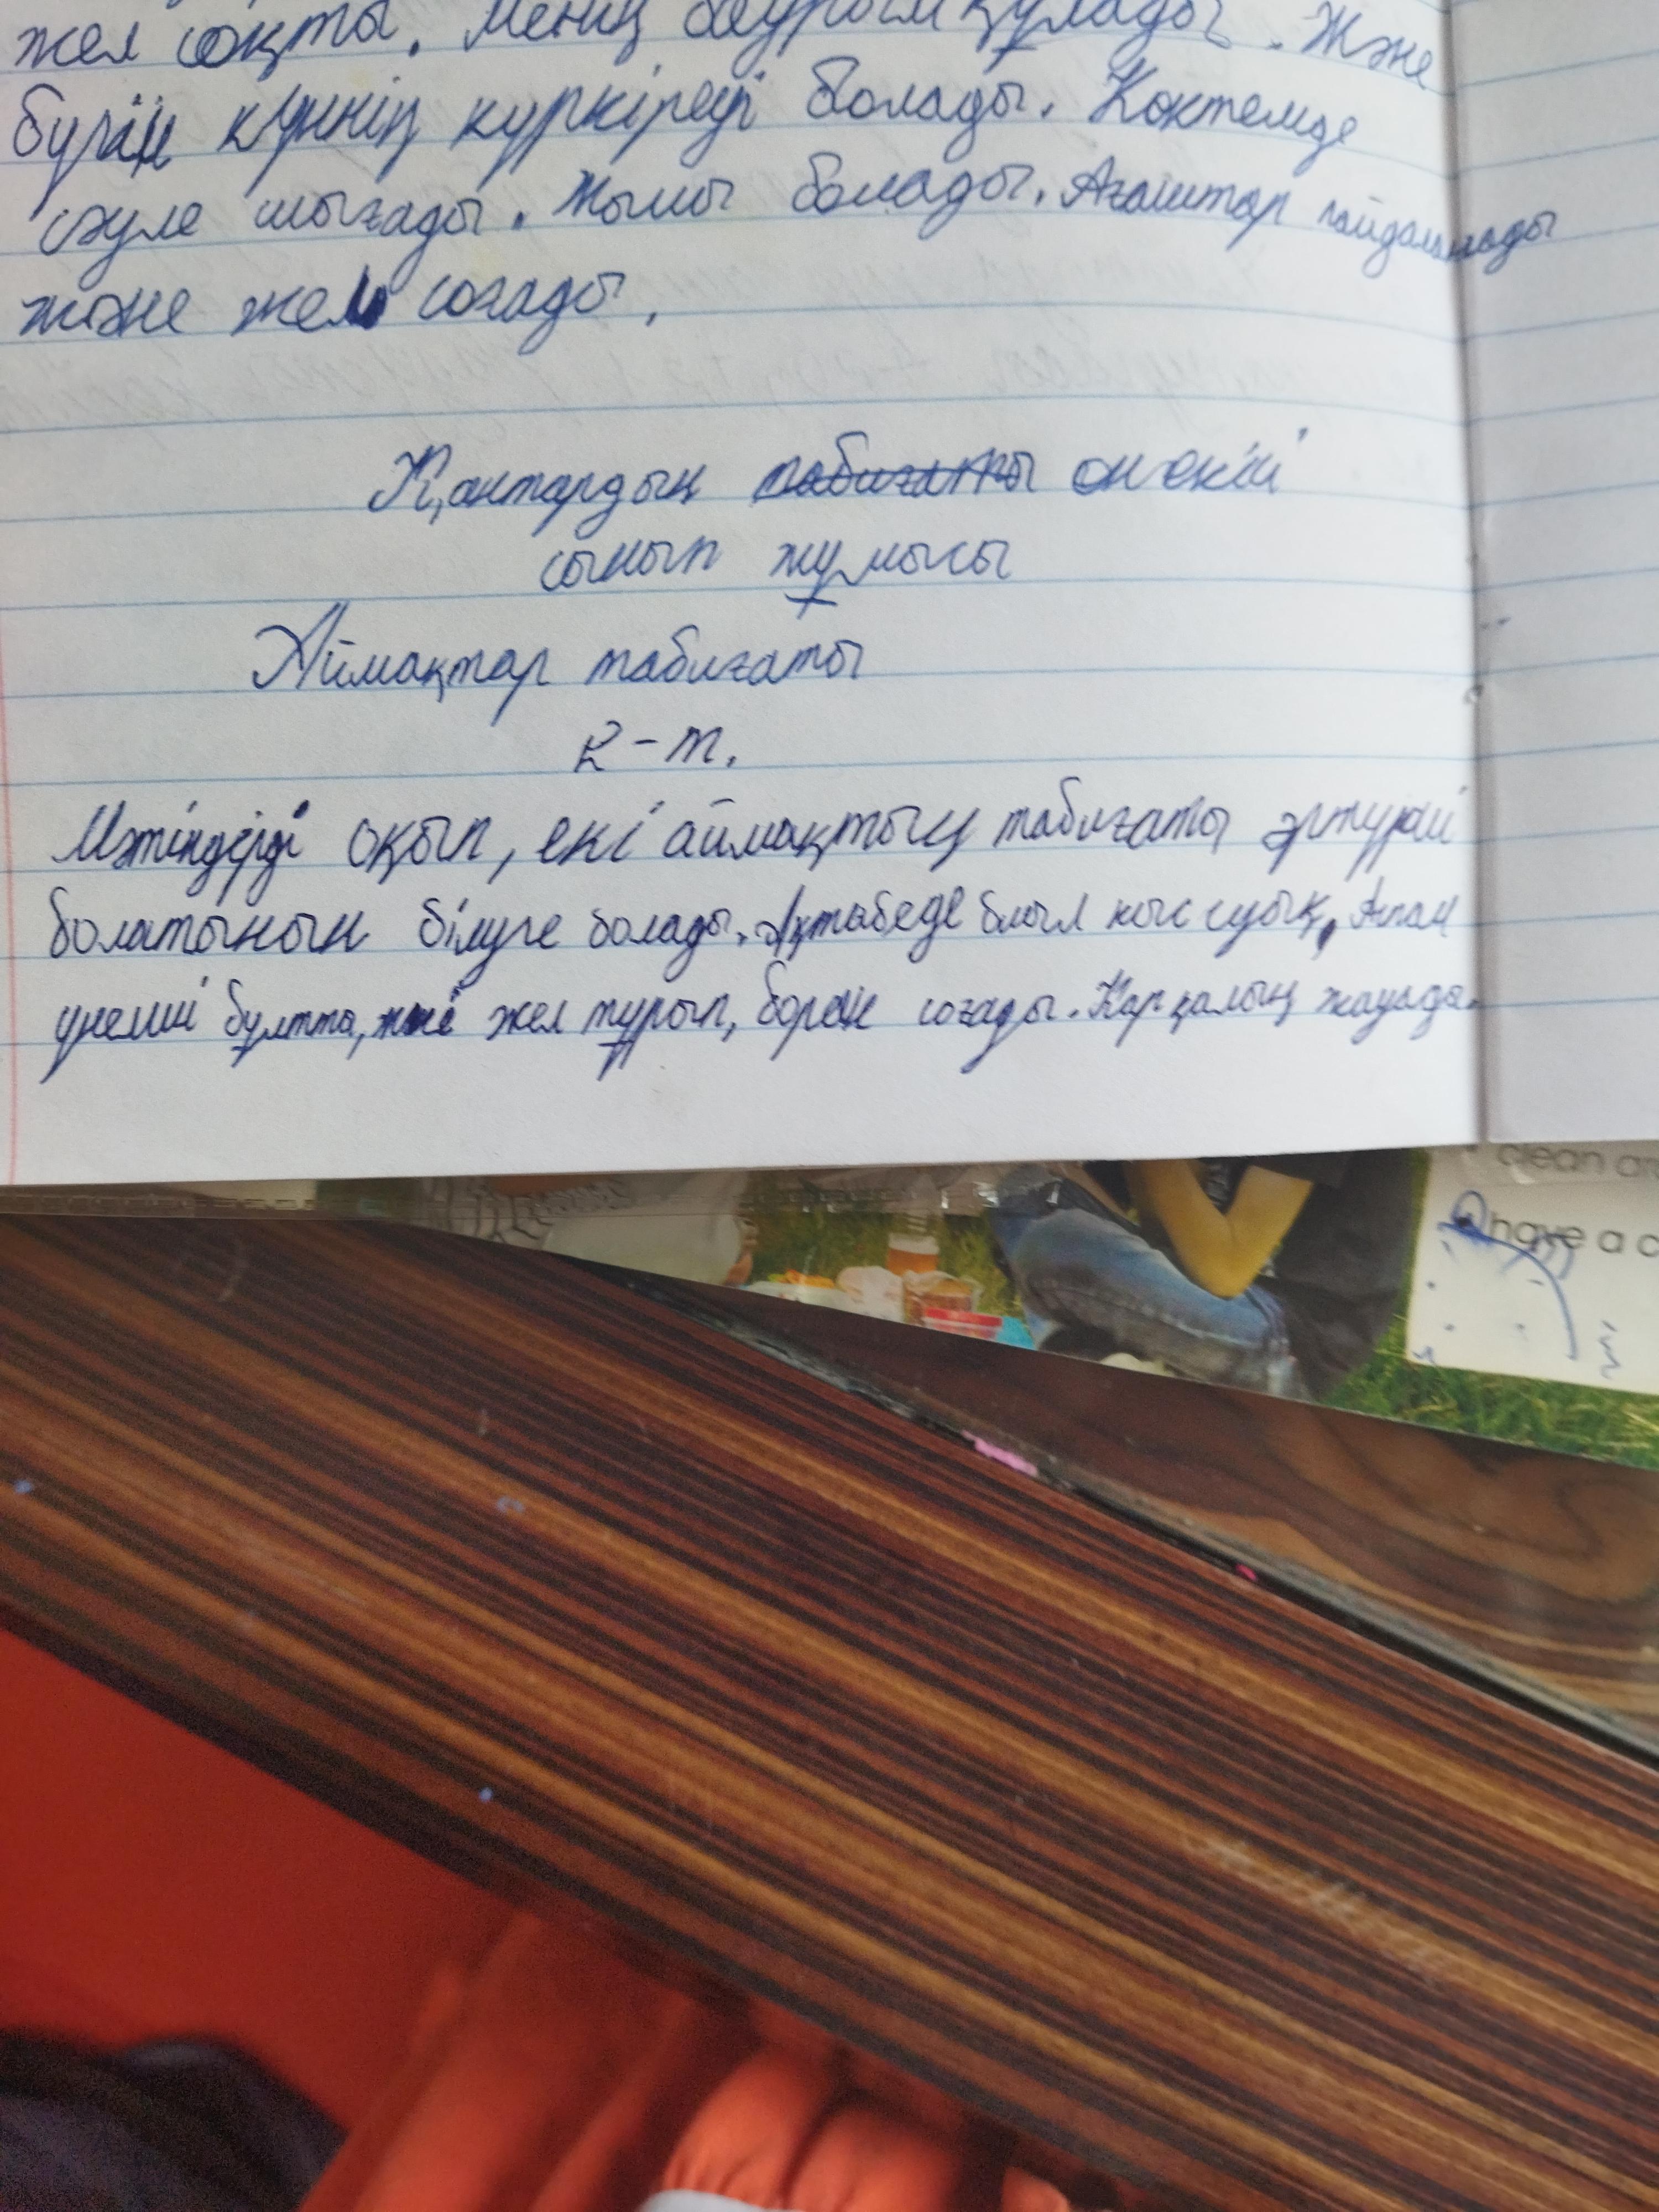 жел соқты. Менің бауырым құлады. Және
бүгін күннің күркіреуі болады. Көктемде
сәуле шығады. Жылы болады. Ағаштар пайдаланады
және жел соғады.
Қантардың он екісі
сынып жұмысы
Аймақтар табиғаты
2-т.
Мәтіндерді оқып, екі аймақтың табиғаты әртүрлі
болатынын білуге болады. Ақтөбеде биыл қыс суық, Аспан
үнемі бұлтты, жел тұрып, боран соғады. Қар қалың жауады.
clean
have a c